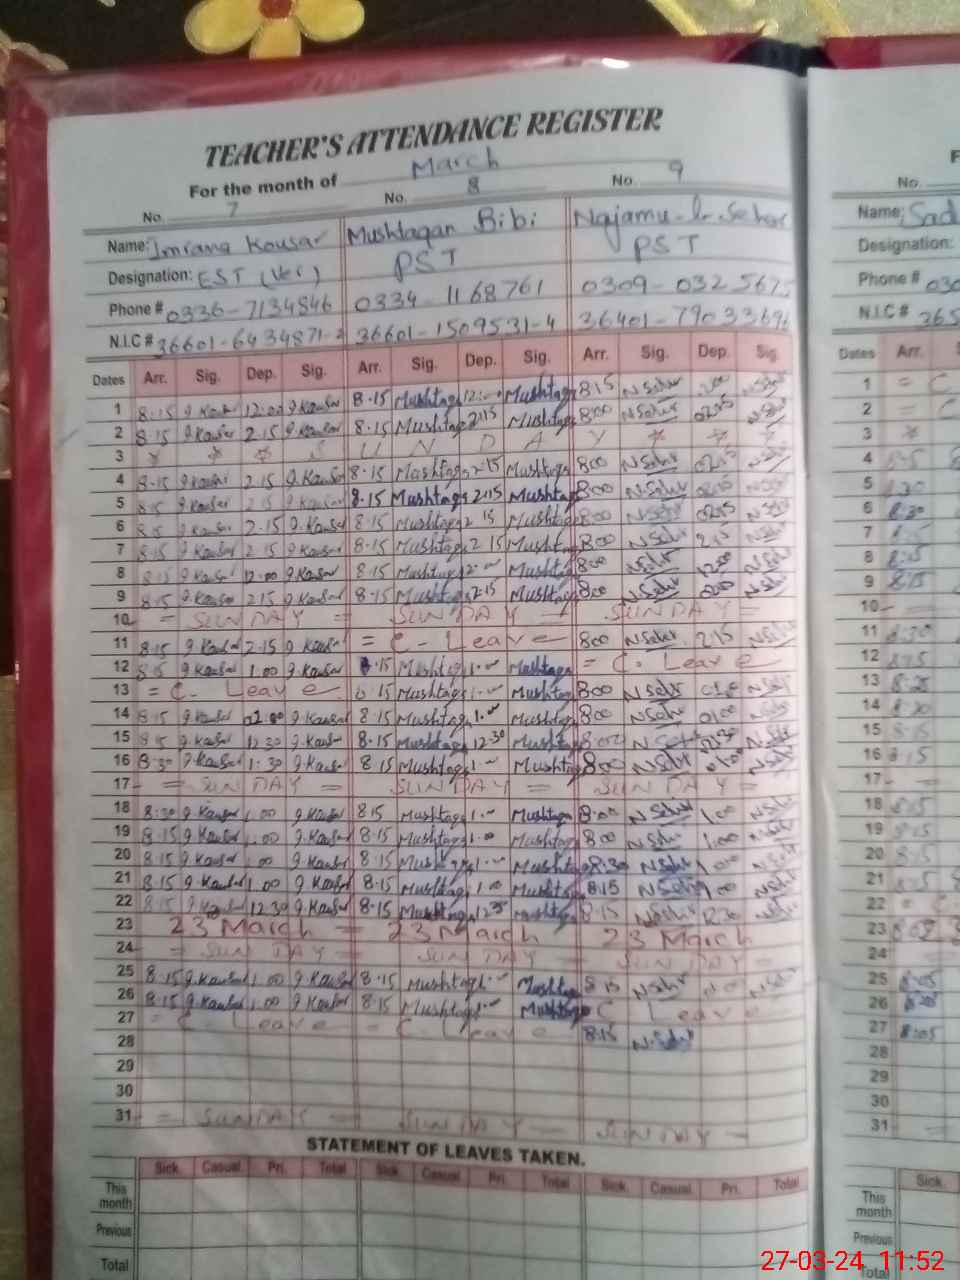 TEACHER'S ATTENDANCE REGISTER
For the month of March
No. 7 No. 8 No. 9
Name: Imrana Kousar Mushtaqan Bibi
Designation: EST (Ver) PST PST
Phone # 0336-7134846 0334-1168761 0309-0325675
N.I.C # 36601-6434871-2 36601-1509531-4 36401-79033696
Dates Arr. Sig. Dep. Sig. Arr. Sig. Dep. Sig. Arr. Sig. Dep. Sig.
1 8.15 J.Kausar 12:00 J.Kausar 8.15 Mushtaq 12:00 Mushtaq 815 N Sehr 1200 N Sehr
2 8.15 J.Kausar 2.15 J.Kausar 8.15 Mushtaq 2.15 Mushtaq 800 N Sehr 0215 N Sehr
3 * * * S U N D A Y * * *
4 8.15 J.Kausar 2.15 J.Kausar 8.15 Mushtaq 2.15 Mushtaq 800 N Sehr 0215 N Sehr
5 8.15 J.Kausar 2.15 J.Kausar 8.15 Mushtaq 2.15 Mushtaq 800 N Sehr 0215 N Sehr
6 8.15 J.Kausar 2.15 J.Kausar 8.15 Mushtaq 2.15 Mushtaq 800 N Sehr 0215 N Sehr
7 8.15 J.Kausar 2.15 J.Kausar 8.15 Mushtaq 2.15 Musht 800 N Sehr 215 N Sehr
8 8.15 J.Kausar 12.00 J.Kausar 8.15 Mushtaq 12.00 Mushtaq 800 N Sehr 1200 N Sehr
9 8.15 J.Kausar 2.15 J.Kausar 8.15 Mushtaq 2.15 Mushtaq 800 N Sehr N Sehr
10 = SUNDAY = SUNDAY = SUNDAY =
11 8.15 J.Kausar 2.15 J.Kausar = C- Leave 800 N Sehr 2.15 N Sehr
12 8.15 J.Kausar 1.00 J.Kausar 8.15 Mushtaq 1.00 Mushtaq = C. Leave
13 = C. Leave 8.15 Mushtaq 1.00 Mushtaq 800 N Sehr 0100 N Sehr
14 8.15 J.Kausar J.Kausar 8.15 Mushtaq 1.00 Mushtaq 800 N Sehr 0100 N Sehr
15 8.15 J.Kausar 12.30 J.Kausar 8.15 Mushtaq 12.30 Mushtaq N Sehr N Sehr
16 8.30 J.Kausar 1.30 J.Kausar 8.15 Mushtaq 1.00 Mushtaq 800 N Sehr N Sehr
17 = SUNDAY = SUNDAY = SUNDAY =
18 8:30 J.Kausar 1.00 J.Kausar 8.15 Mushtaq 1.00 Mushtaq 8:00 N Sehr 1.00 N Sehr
19 8.15 J.Kausar 1.00 J.Kausar 8.15 Mushtaq 1.00 Mushtaq 800 N Sehr 1.00 N Sehr
20 8.15 J.Kausar 1.00 J.Kausar 8.15 Mushtaq 1.00 Mushtaq 8:30 N Sehr 1.00 N Sehr
21 8.15 J.Kausar 1.00 J.Kausar 8.15 Mushtaq 1.00 Mushtaq 8.15 N Sehr 1.00 N Sehr
22 8.15 J.Kausar 12.30 J.Kausar 8.15 Mushtaq Mushtaq 8.15 N Sehr 12.30 N Sehr
23 23 March = 23 March 23 March
24 = SUNDAY = SUNDAY = SUNDAY =
25 8.15 J.Kausar 1.00 J.Kausar 8.15 Mushtaq 1.00 Mushtaq 8.15 N Sehr N Sehr
26 8.15 J.Kausar 1.00 J.Kausar 8.15 Mushtaq 1.00 Mushtaq C Leave
27 = C- Leave = C Leave 8.15 N.Sehr
28
29
30
31 = SUNDAY = SUNDAY = SUNDAY =
STATEMENT OF LEAVES TAKEN.
Sick. Casual. Pri. Total Sick. Casual. Pri. Total Sick. Casual. Pri. Total
This month
Previous
Total
No.
Name: Sad
Designation:
Phone # 030
N.I.C # 365
Dates Arr.
1 = C
2 = C
3 *
4
5
6 8:30
7
8 8:15
9 8:15
10
11 8:30
12
13 8:25
14
15
16 8:15
17
18
19
20
21
22
23
24
25 8:05
26
27 8:05
28
29
30
31
Sick.
This month
Previous
Total
27-03-24 11:52